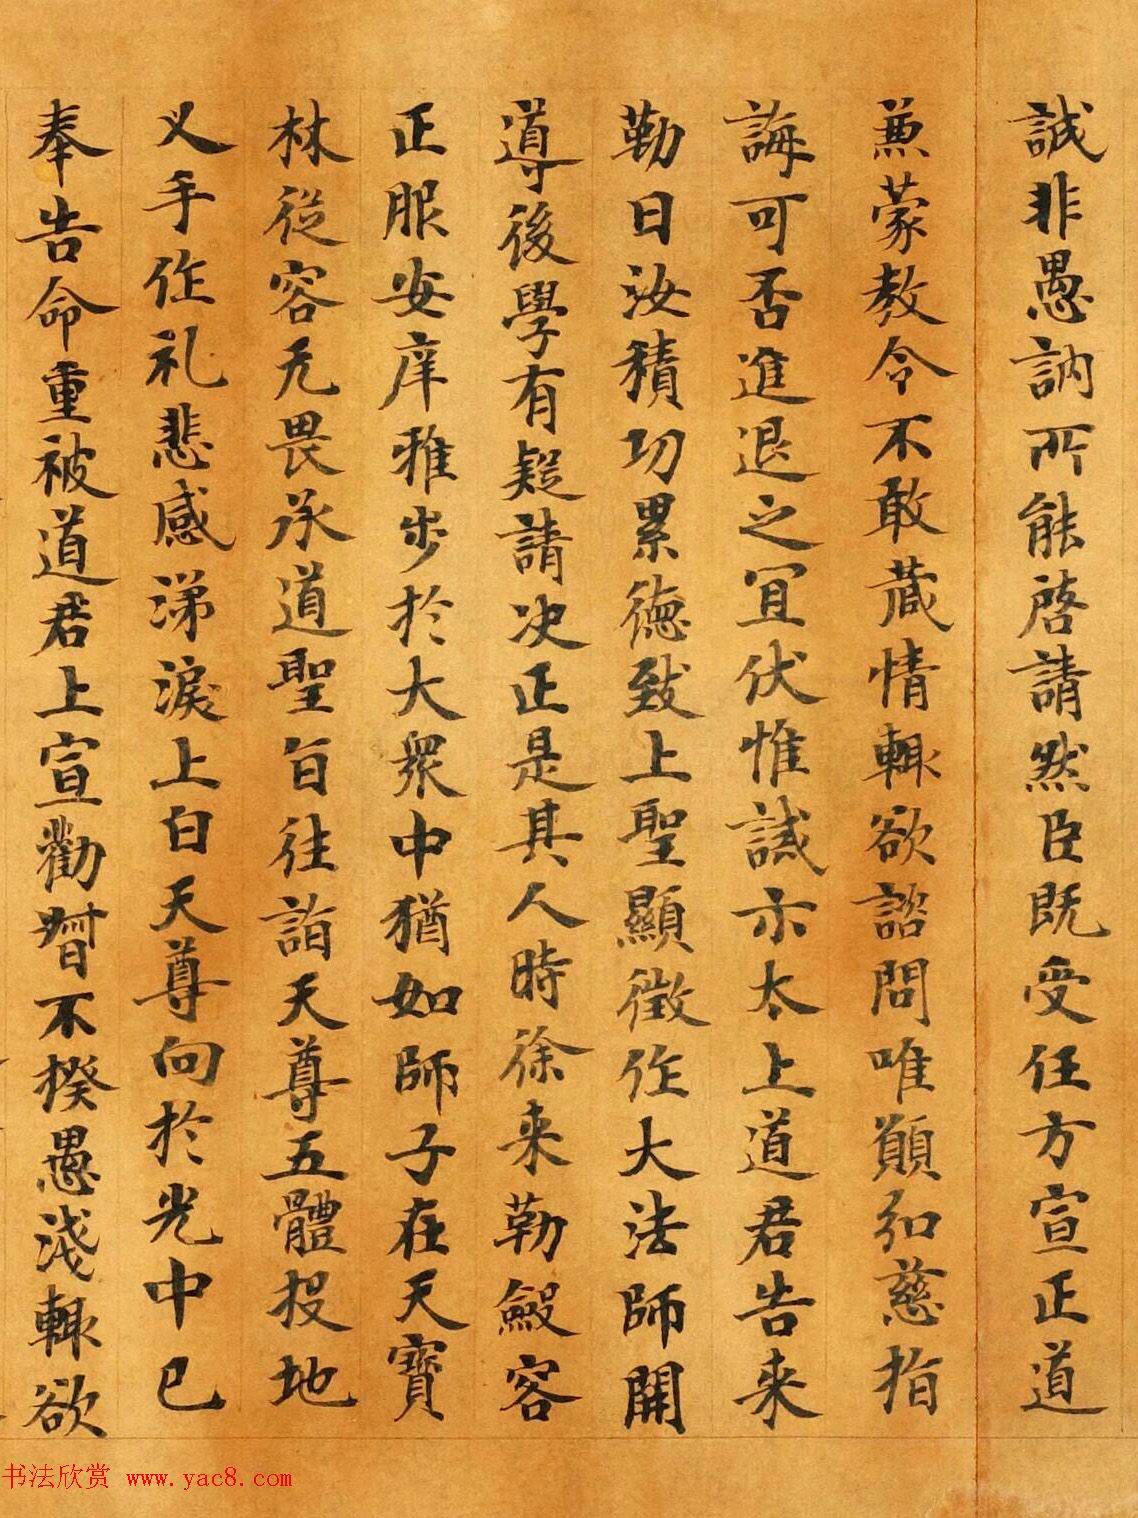 誠非愚訥所能啓請然臣既受任方宣正道
蒹蒙教令不敢蔵情輙欲諮問唯願弘慈指
誨可否進退之冝伏惟誡示太上道君告来
勒曰汝積功累德致上聖顯徵作大法師開
導後學有疑請决正是其人時徐来勒斂容
正服安庠雅步於大衆中猶如師子在天寶
林從容无畏承道聖旨往詣天尊五體投地
叉手作礼悲感涕淚上白天尊向於光中已
奉告命重被道君上宣勸督不揆愚淺輙欲
书法欣赏 www.yac8.com